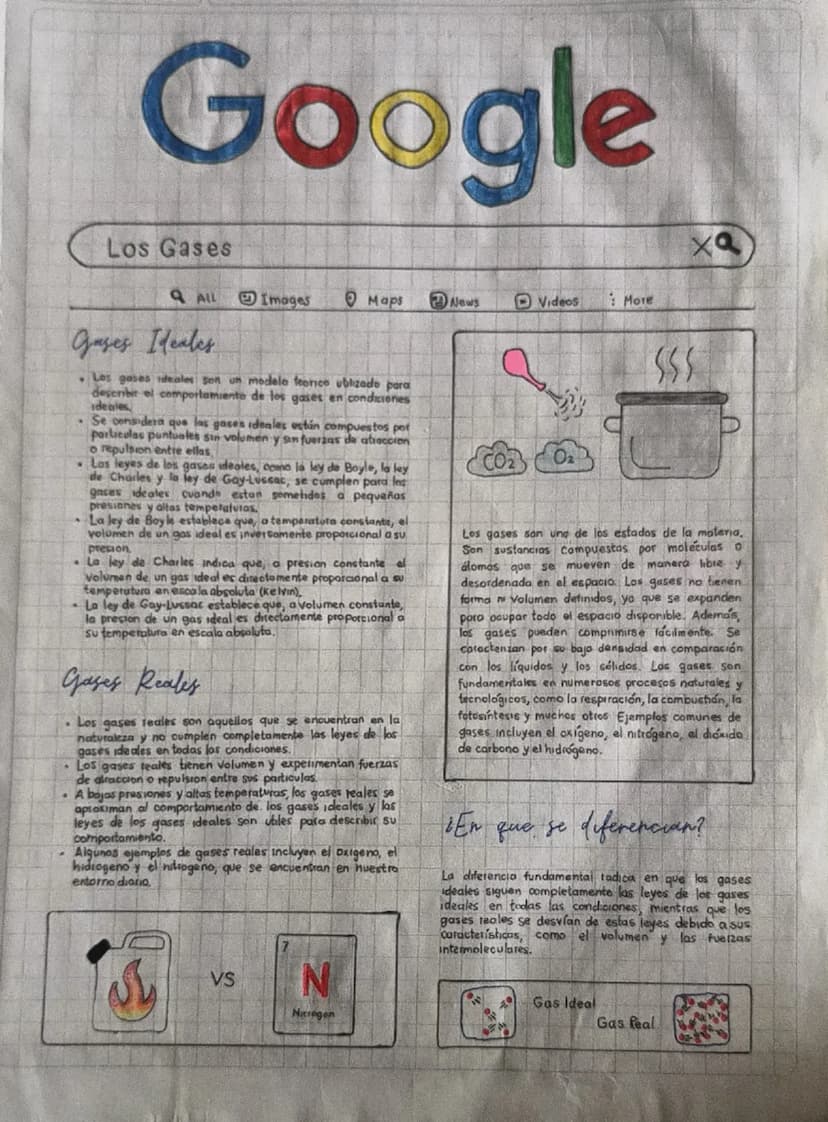 Google
Los Gases
All Images Maps News Videos More
Gases Ideales
• Los gases ideales son un modelo teorico utilizado para
describir el comportamiento de los gases en condiciones
ideales.
• Se considera que los gases ideales están compuestos por
particulas puntuales sin volumen y sin fuerzas de atraccion
o repulsion entre ellas.
• Las leyes de los gases ideales, como la ley de Boyle, la ley
de Charles y la ley de Gay-Lussac, se cumplen para los
gases ideales cuando estan sometidos a pequeñas
presiones y altas temperaturas.
• La ley de Boyle establece que, a temperatura constante, el
volumen de un gas ideal es inversamente proporcional a su
presion.
• La ley de Charles indica que, a presion constante el
volumen de un gas ideal es directamente proporcional a su
temperatura en escala absoluta (Kelvin).
• La ley de Gay-Lussac establece que, a volumen constante,
la presion de un gas ideal es directamente proporcional a
su temperatura en escala absoluta.
Gases Reales
• Los gases reales son aquellos que se encuentran en la
naturaleza y no cumplen completamente las leyes de los
gases ideales en todas las condiciones.
• Los gases reales tienen volumen y experimentan fuerzas
de atraccion o repulsion entre sus particulas.
• A bajas presiones y altas temperaturas, los gases reales se
aproximan al comportamiento de los gases ideales y las
leyes de los gases ideales son utiles para describir su
comportamiento.
• Algunos ejemplos de gases reales incluyen el oxigeno, el
hidrogeno y el nitrogeno, que se encuentran en nuestro
entorno diario.
VS
7
N
Nitrogen
CO2 O2
Los gases son uno de los estados de la materia.
Son sustancias compuestas por moléculas o
átomos que se mueven de manera libre y
desordenada en el espacio. Los gases no tienen
forma ni volumen definidos, ya que se expanden
para ocupar todo el espacio disponible. Además,
los gases pueden comprimirse fácilmente. Se
caracterizan por su baja densidad en comparación
con los líquidos y los sólidos. Los gases son
fundamentales en numerosos procesos naturales y
tecnológicos, como la respiración, la combustión, la
fotosíntesis y muchos otros Ejemplos comunes de
gases incluyen el oxígeno, el nitrógeno, el dióxido
de carbono y el hidrógeno.
¿En que se diferencian?
La diferencia fundamental radica en que los gases
ideales siguen completamente las leyes de los gases
ideales en todas las condiciones, mientras que los
gases reales se desvían de estas leyes debido a sus
características, como el volumen y las fuerzas
intermoleculares.
Gas Ideal
Gas Real